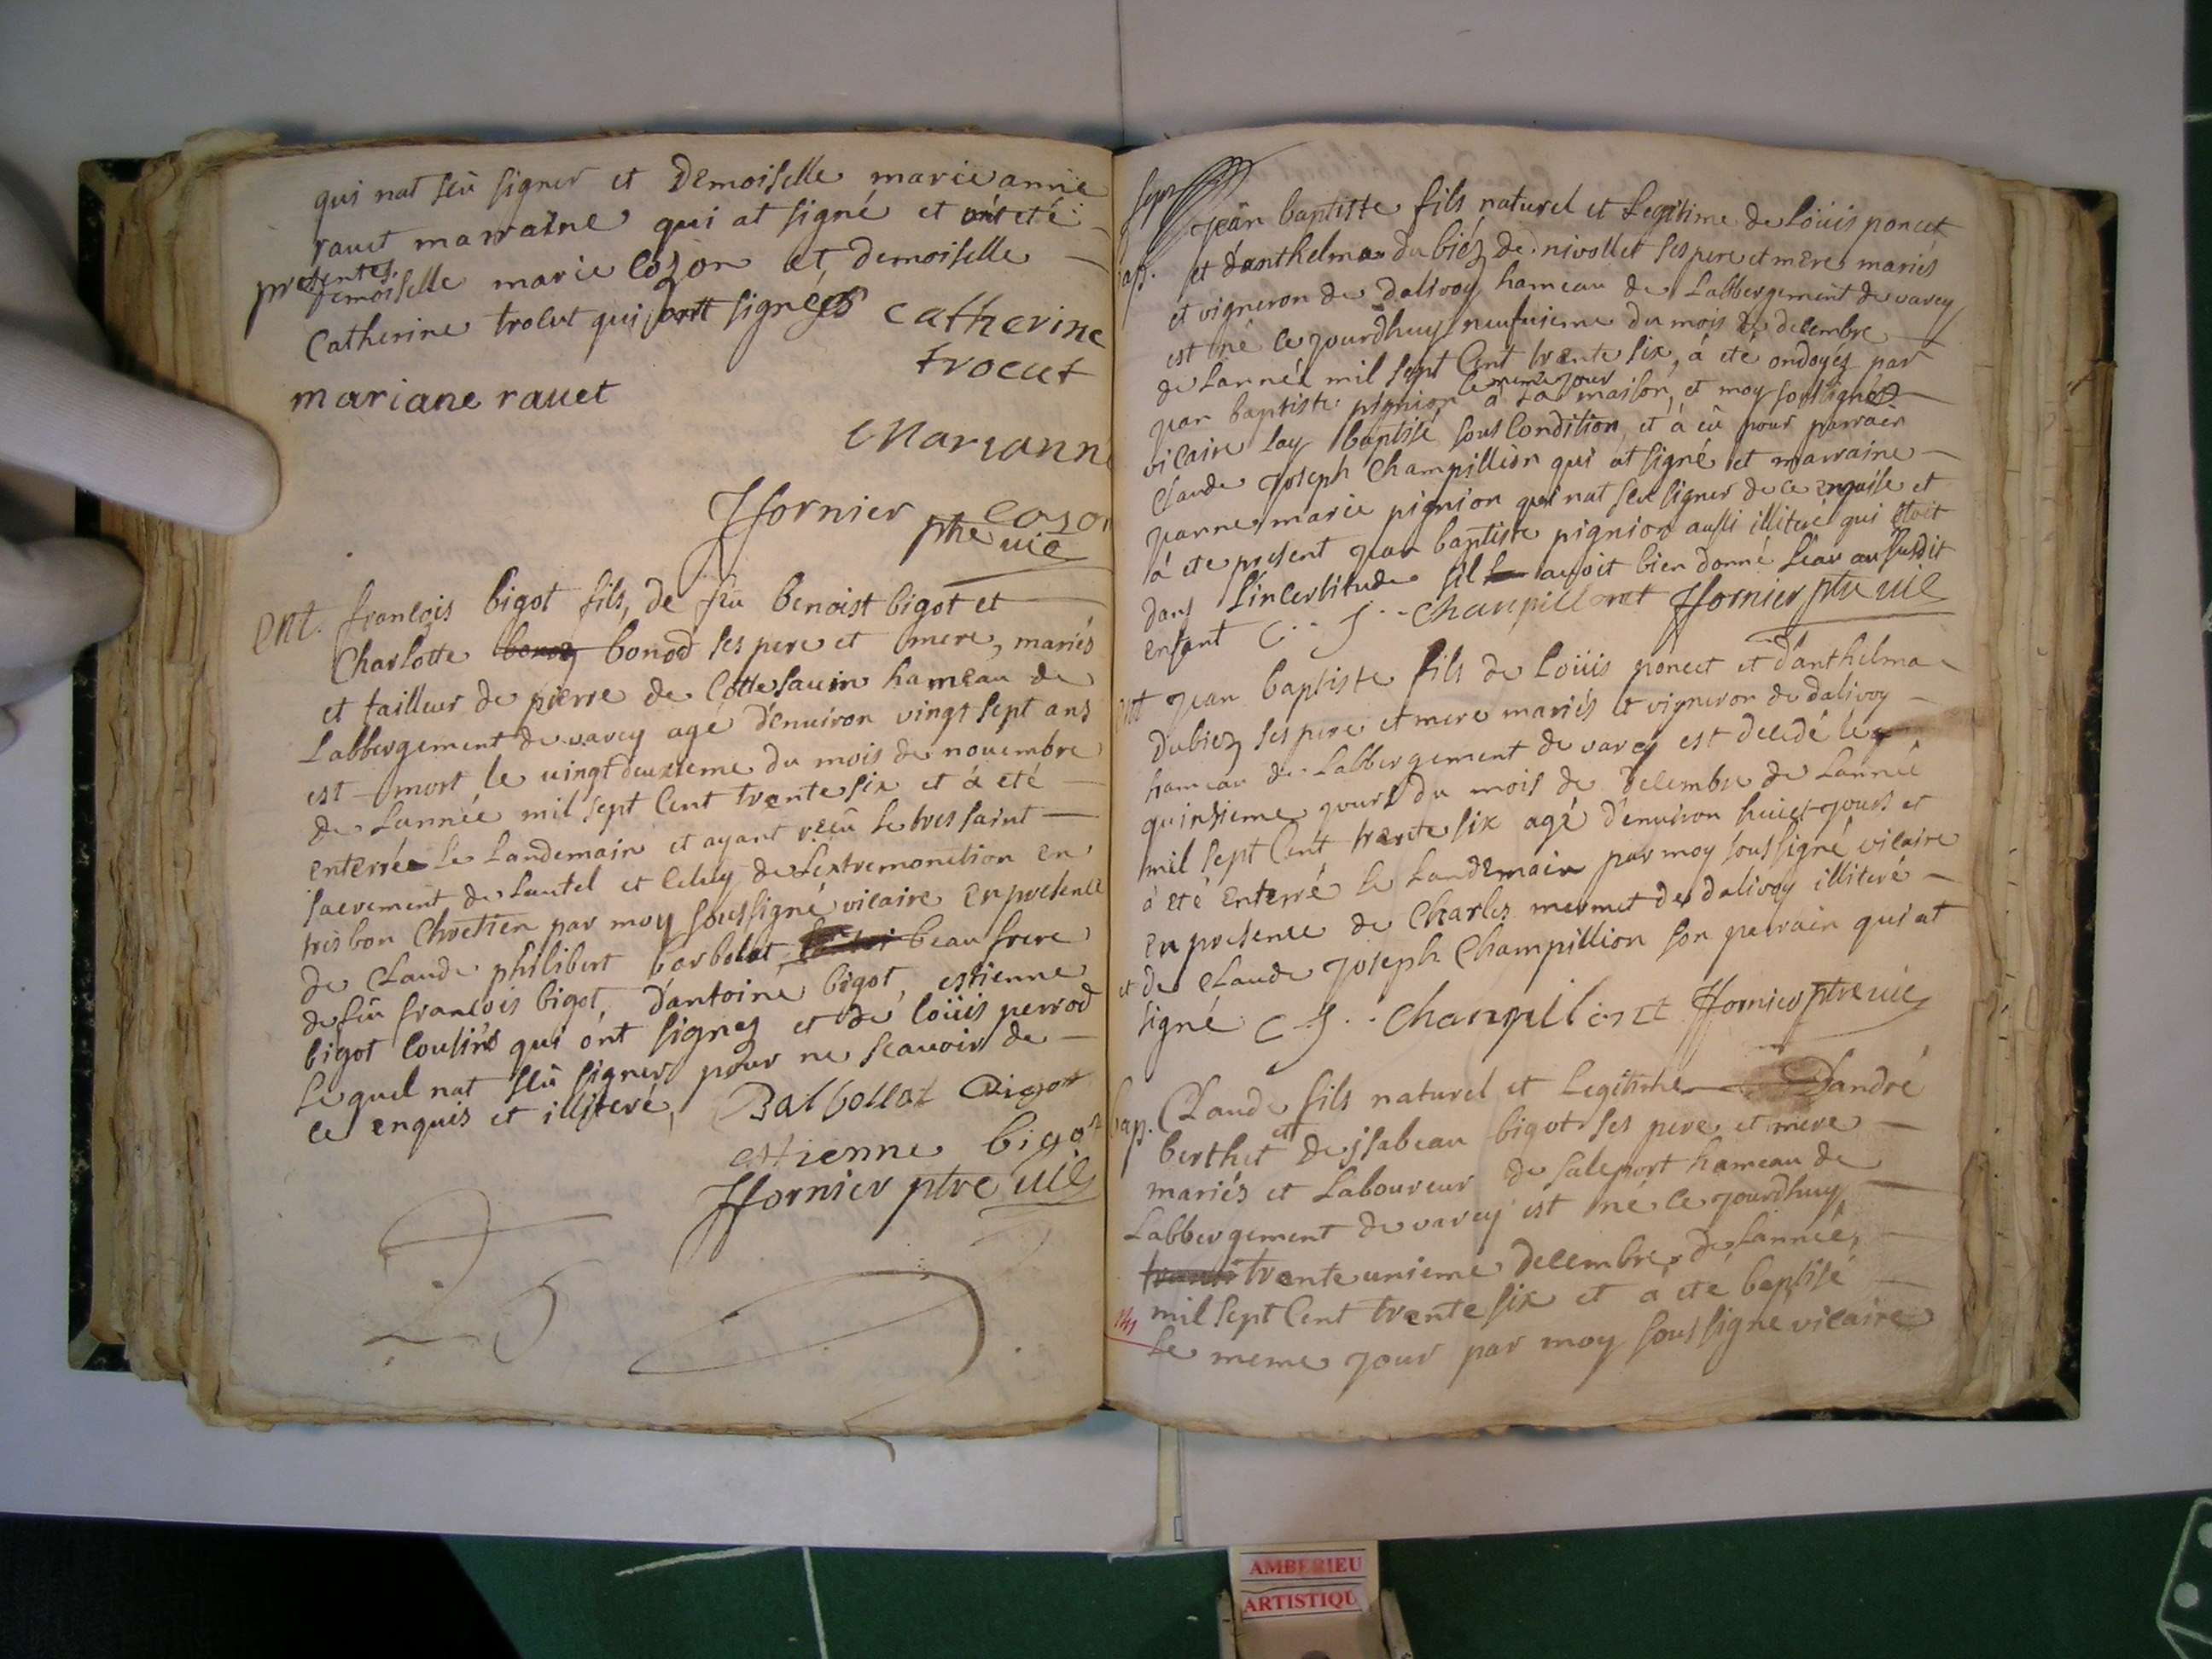 qui nat seü signer et Demoiselle marie anne
rauet marraine qui at signé et ont eté
presentes
demoiselle marie cozon et demoiselle
Catherine trocut qui ont signées catherine
trocut
mariane rauet
Marianne
cozon
Jfornier ptre vic
ent. francois bigot fils, de feu benoist bigot et
Charlotte bonod ses pere et mere, mariés
et tailleur de pierre de Cottesauin hameau de
Labbergement de varey agé d'enuiron vingt sept ans
est mort le uingt deuxieme du mois de nouembre
de Lannée mil sept Cent trente six et á eté
enterrée le Landemain et ayant reçu le tres saint
sacrement de Lautel et celuy de Lextremonction en
tres bon Chretien par moy soussigné vicaire en presence
de Claude philibert barbolat beaufrere
de feu francois bigot, d'antoine bigot, estienne
bigot cousins qui ónt signez et de loüis perrod
lequel nat seü signer pour ne scauoir de
ce enquis et illiteré, Balbollat Bigot
estienne bigot
Jfornier ptre vic
Jean baptiste fils naturel et Legitime de Loüis poncet
bap. et d'anthelma dubiéz de nivollet ses pere et mere mariés
et vigneron de Dalivoy hameau de Labbergement de varey
est né ce jourdhuy neufuieme du mois de decembre
de Lannée mil sept Cent trente six, á eté ondoyéz par
le meme jour
jean baptiste pignion á La maison, et moy soussigné
vicaire Lay baptisé sous Condition, et á eü pour parrain
Claude Joseph Champillion qui at signé et marraine
jeanne marie pignion qui nat seu signer de ce enquise et
á eté present jean baptiste pignion aussi illiteré qui étoit
dans L'incertitude sil avoit bien donné Leau au susdit
enfant C.. J.. Chanpilliont Jfornier ptre vic
ent jean baptiste fils de Loüis poncet et d'anthelma
Dubiez ses pere et mere mariés et vigneron de dalivoy
hameau de Labbergement de varey est decedé le
quinsieme jour du mois de decembre de Lannée
mil sept Cent trente six agé d'enuiron huict jours et
á eté enterré le Landemain par moy soussigné vicaire
en presence de Charles mermet de dalivoy illiteré
et de Claude Joseph Champillion son parrain qui at
signé C.. J.. Chanpilliont Jfornier ptre vic
bap. Claude fils naturel et Legitime D'andré
berthet et de jsabeau bigot ses pere et mere
mariés et Laboureur de saleport hameau de
Labbergement de varey est né ce jourdhuy
trente unieme decembre de Lannée
mil sept Cent trente six et á eté baptisé
le meme jour par moy soussigné vicaire
AMBERIEU
ARTISTIQU